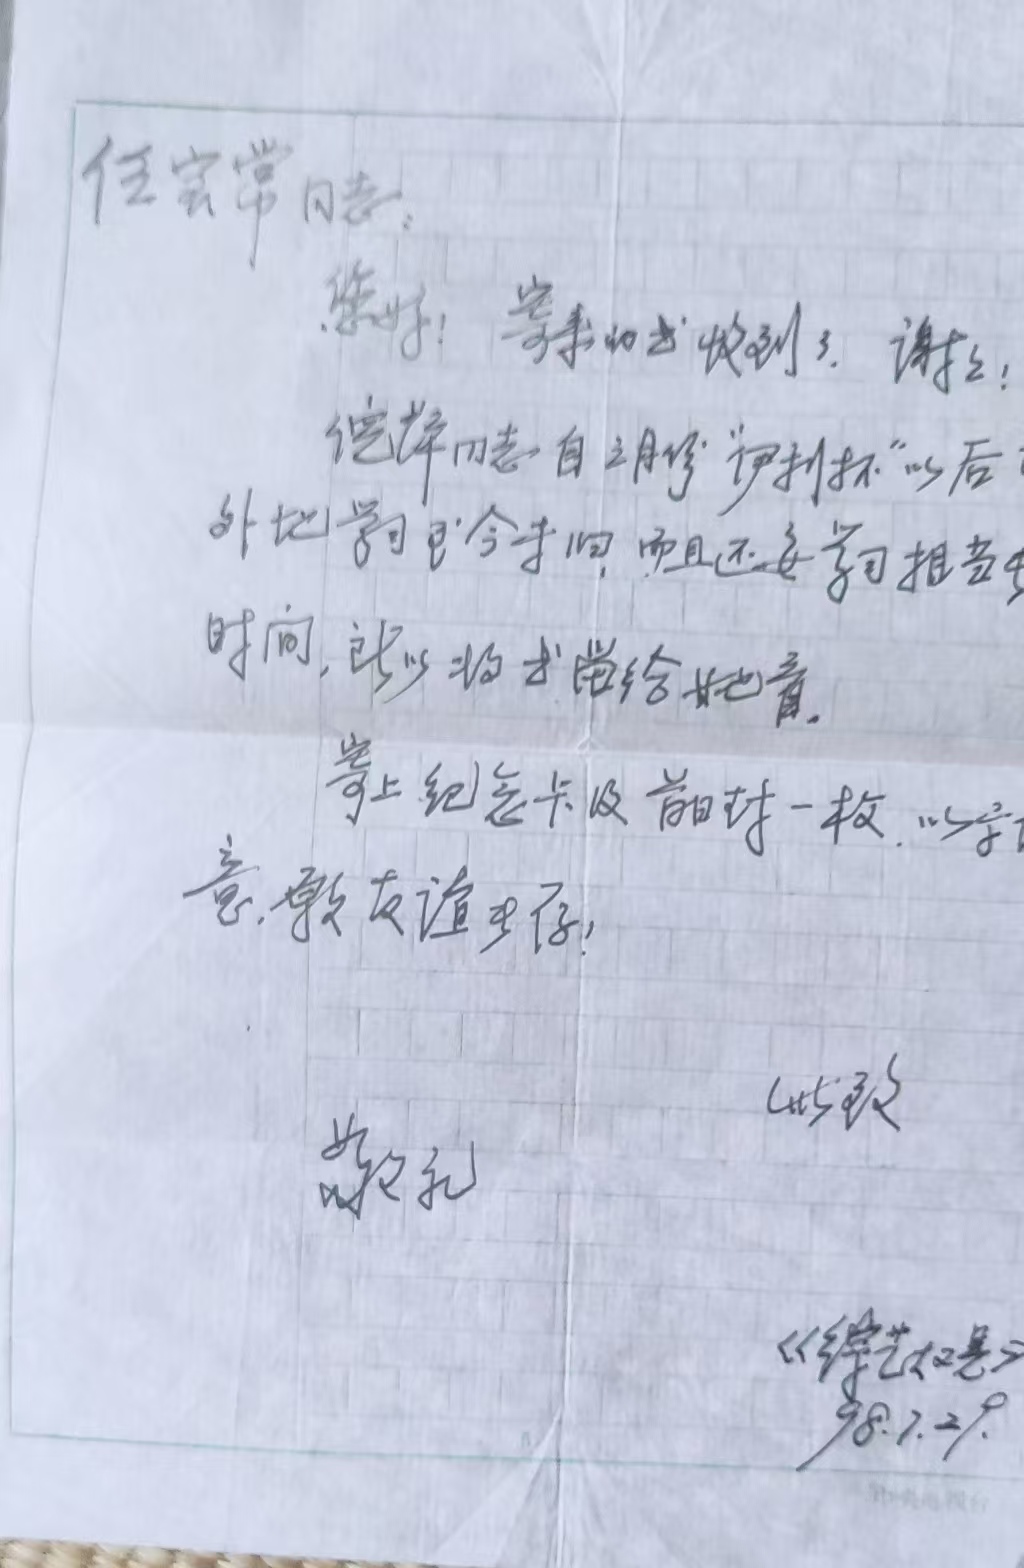 任宝常同志:
您好! 寄来的书收到了. 谢谢!
倪萍同志自二月份"伊利杯"以后
外地学习至今未归,而且还要学习相当
时间,所以将书留给其他.
寄上纪念卡及首日封一枚.以
意.愿友谊长存!
此致
敬礼
《综艺大观》
98.7.29.